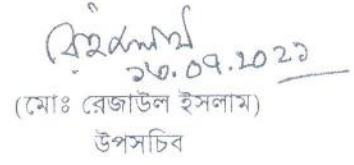 ১৩.০৭.২০২১
(মোঃ রেজাউল ইসলাম)
উপসচিব